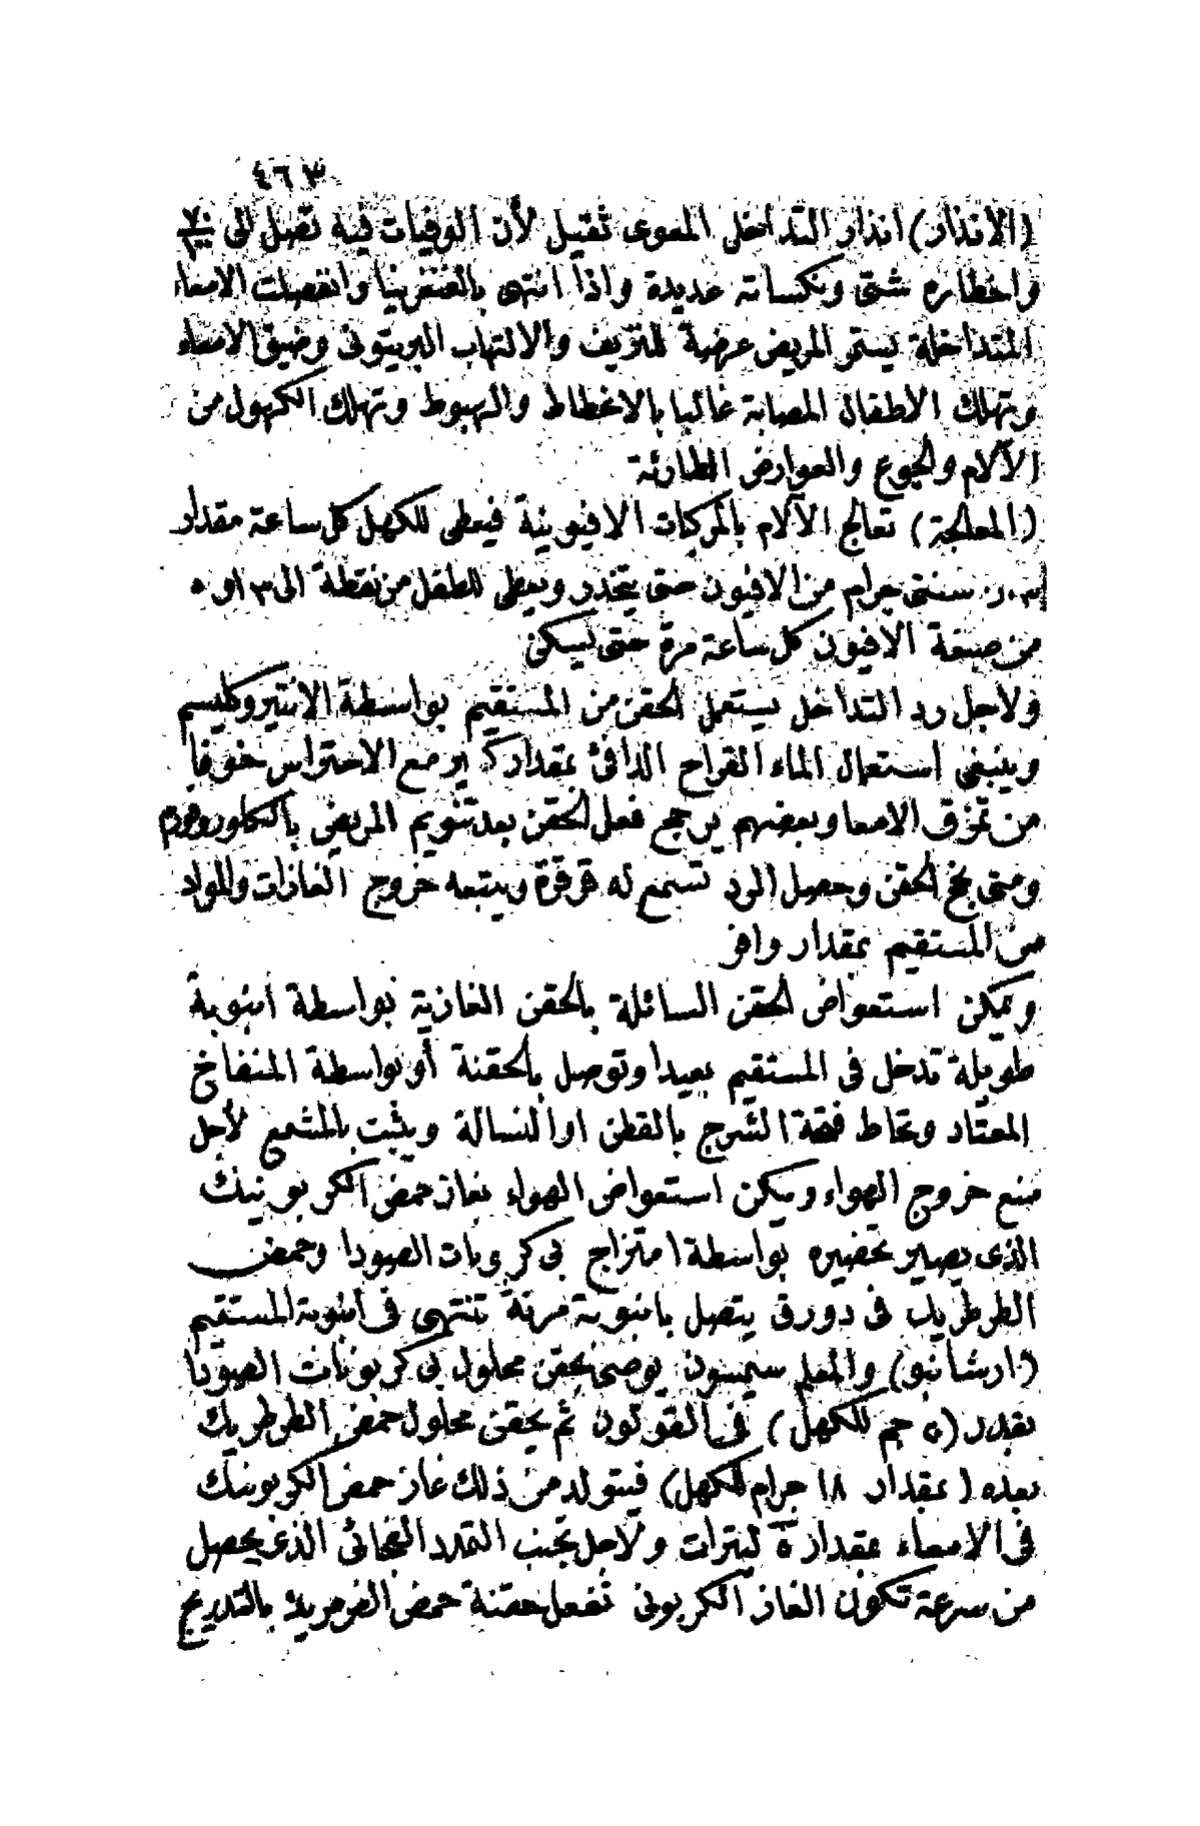 ٤٦٣
(الانذار) انذار التداخل المعوى ثقيل لأن الوفيات فيه تصل الى ٧٠/١٠٠
واخطاره شتى ونكساته عديدة واذا انتهى بالغنغرينا وانفصلت الامعاء
المتداخلة يستمر المريض عرضية للنزيف والالتهاب البريتونى وضيق الامعاء
وتهلك الاطفال المصابة غالبا بالانحطاط والهبوط وتهلك الكهول من
الآلام والجوع والعوارض الطارئة
(المعالجة) تعالج الآلام بالمركبات الافيونية فيعطى للكهل كل ساعة مقدار
٠٫٠٣ سنتى جرام من الافيون حتى يتخدر ويعطى للطفل من نقطة الى ٣ او ٥
من صبغة الافيون كل ساعة مرة حتى يسكن
ولاجل رد التداخل يستعمل الحقن من المستقيم بواسطة الانتيروكليسم
وينبغى استعمال الماء القراح الدافئ بمقدار كبير مع الاحتراس خوفا
من تمزق الامعا وبعضهم يرجح فعل الحقن بعد تنويم المريض بالكلوروفورم
ومتى نجح الحقن وحصل الرد تسمع له قرقرة ويتبعه خروج الغازات والمواد
من المستقيم بمقدار وافر
ويمكن استعواض الحقن السائلة بالحقن الغازية بواسطة انبوبة
طويلة تدخل فى المستقيم بعيدا وتوصل بالحقنة أو بواسطة المنفاخ
المعتاد وتحاط فتحة الشرج بالقطن او النسالة ويثبت بالمشمع لأجل
منع خروج الهواء ويمكن استعواض الهواء بغاز حمض الكربونيك
الذى يصير تحضيره بواسطة امتزاج بى كربونات الصودا وحمض
الطرطريك فى دورق يتصل بانبوبة مرنة تنتهى فى انبوبة المستقيم
(ارشانبو) والمعلم سيمسون يوصى بحقن محلول بى كربونات الصودا
بقدر (٥ جم للكهل) فى القولون ثم يحقن محلول حمض الطرطريك
بعده (بمقدار ١٨ جرام للكهل) فيتولد من ذلك غاز حمض الكربونيك
فى الامعاء بمقدار ٥ ليترات ولاجل تجنب التمدد الفجائى الذى يحصل
من سرعة تكون الغاز الكربونى تفعل حقنة حمض بالتدريج